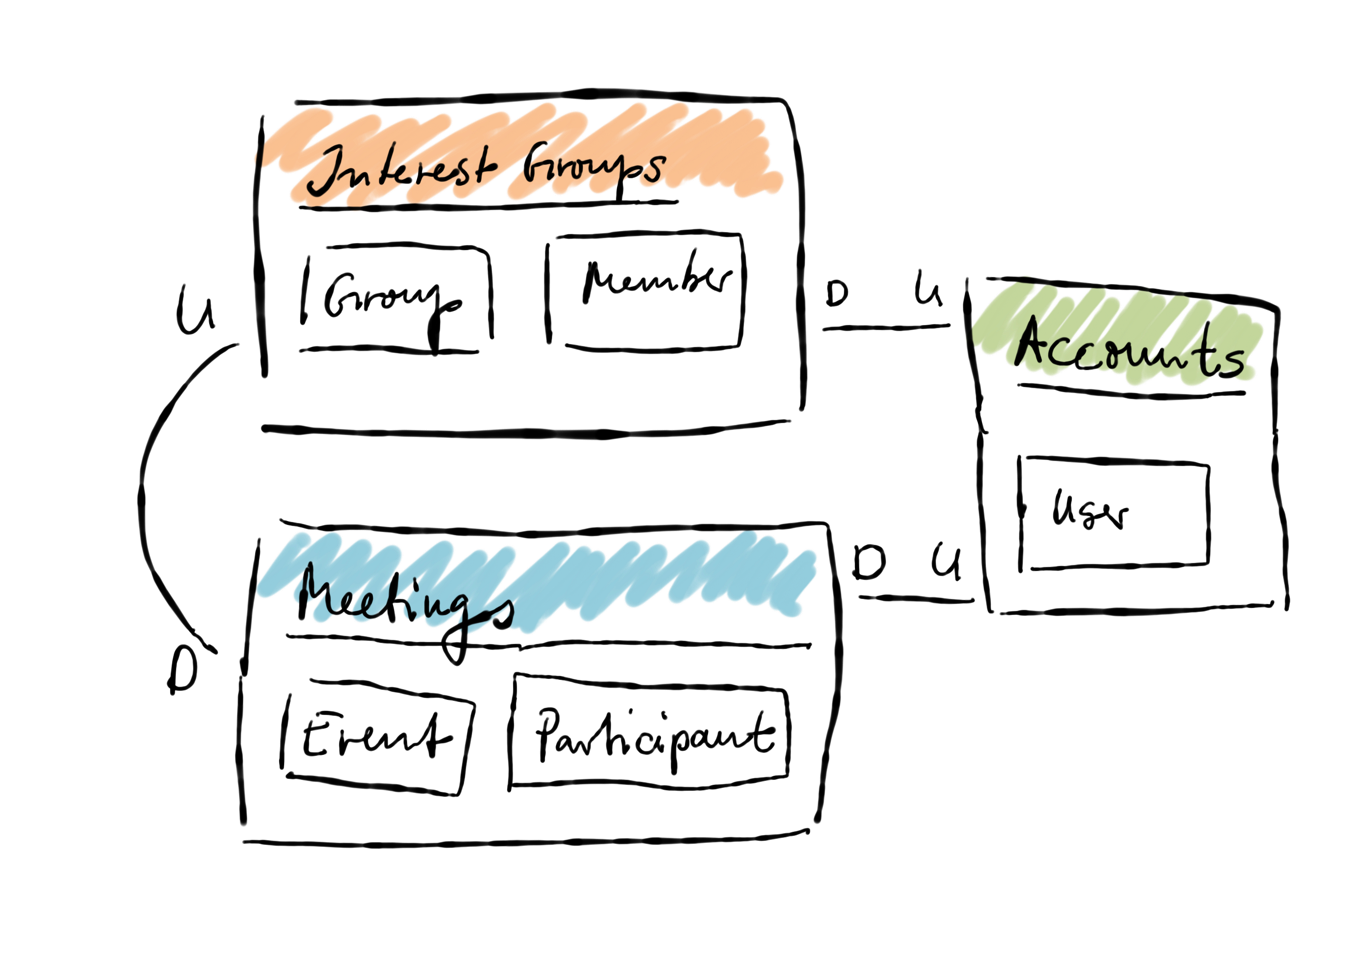 Interest Groups
Group
Member
U
D U
Accounts
User
D U
Meetings
D
Event
Participant